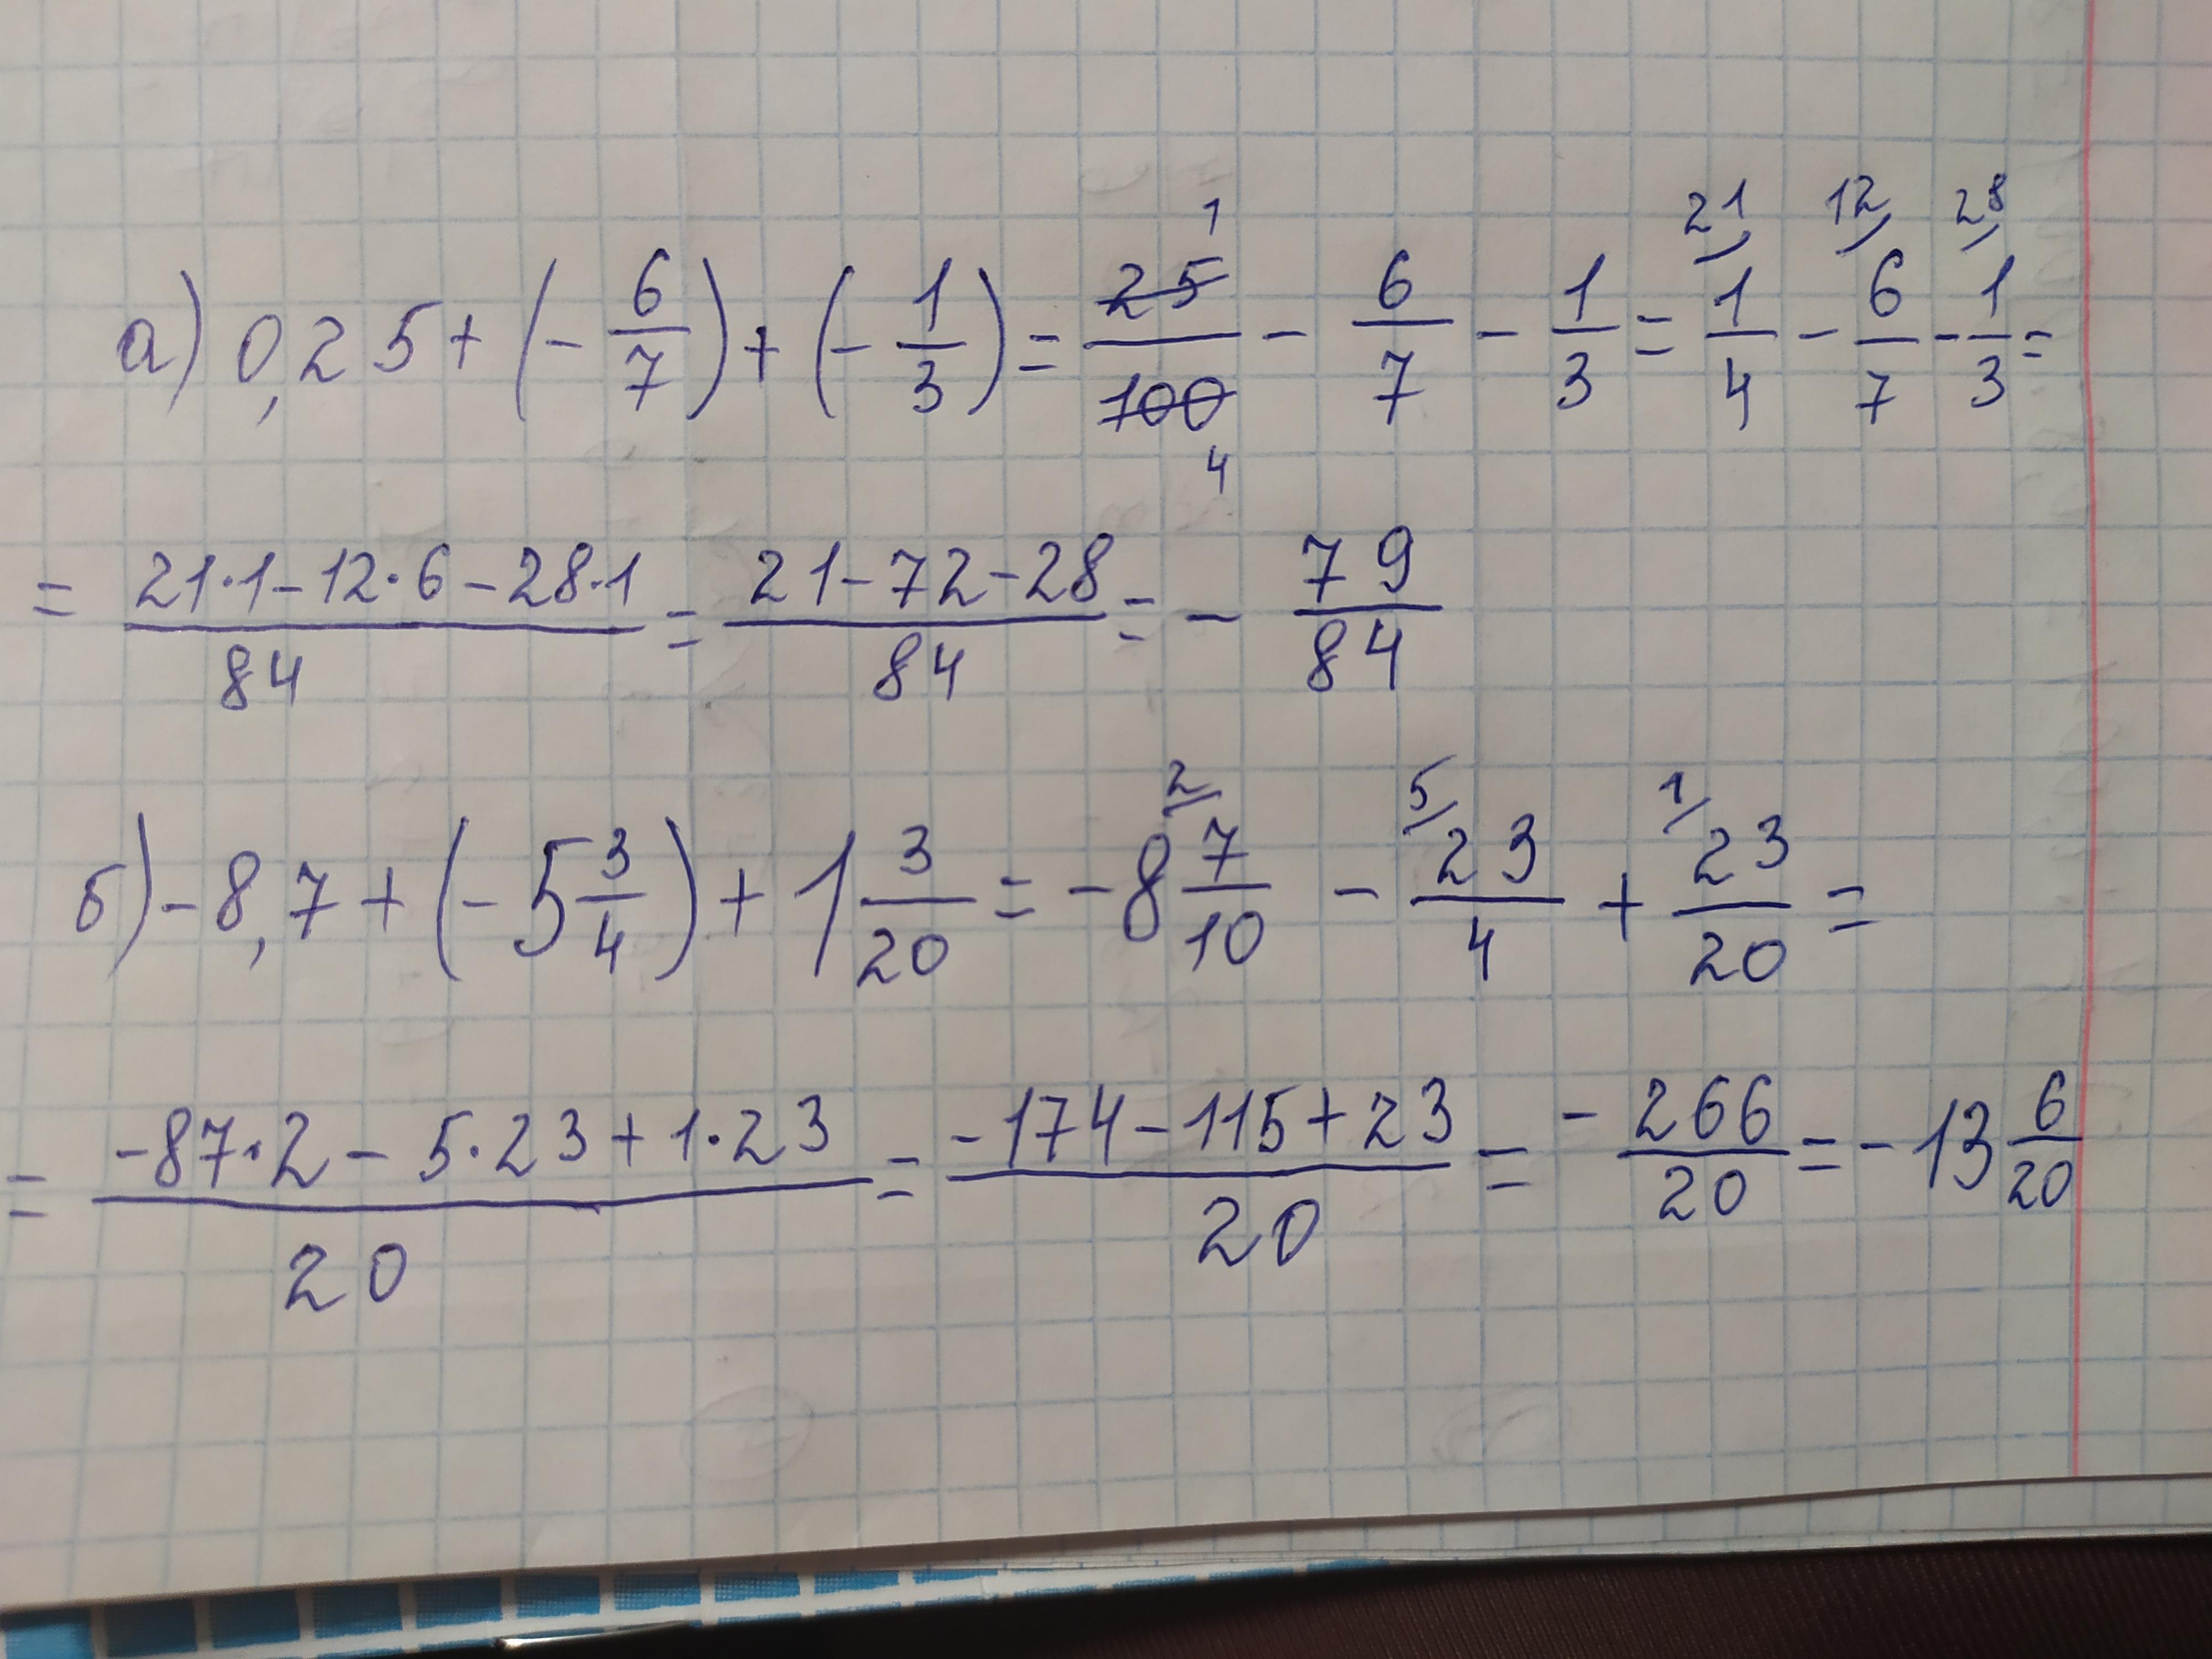 а) 0,25 + (- 6/7) + (- 1/3) = 25/100 (1/4) - 6/7 - 1/3 = 21/ 1/4 - 12/ 6/7 - 28/ 1/3 =
= (21·1 - 12·6 - 28·1)/84 = (21 - 72 - 28)/84 = - 79/84
б) - 8,7 + (- 5 3/4) + 1 3/20 = - 8 2/ 7/10 - 5/ 23/4 + 1/ 23/20 =
= (-87·2 - 5·23 + 1·23)/20 = (-174 - 115 + 23)/20 = - 266/20 = - 13 6/20